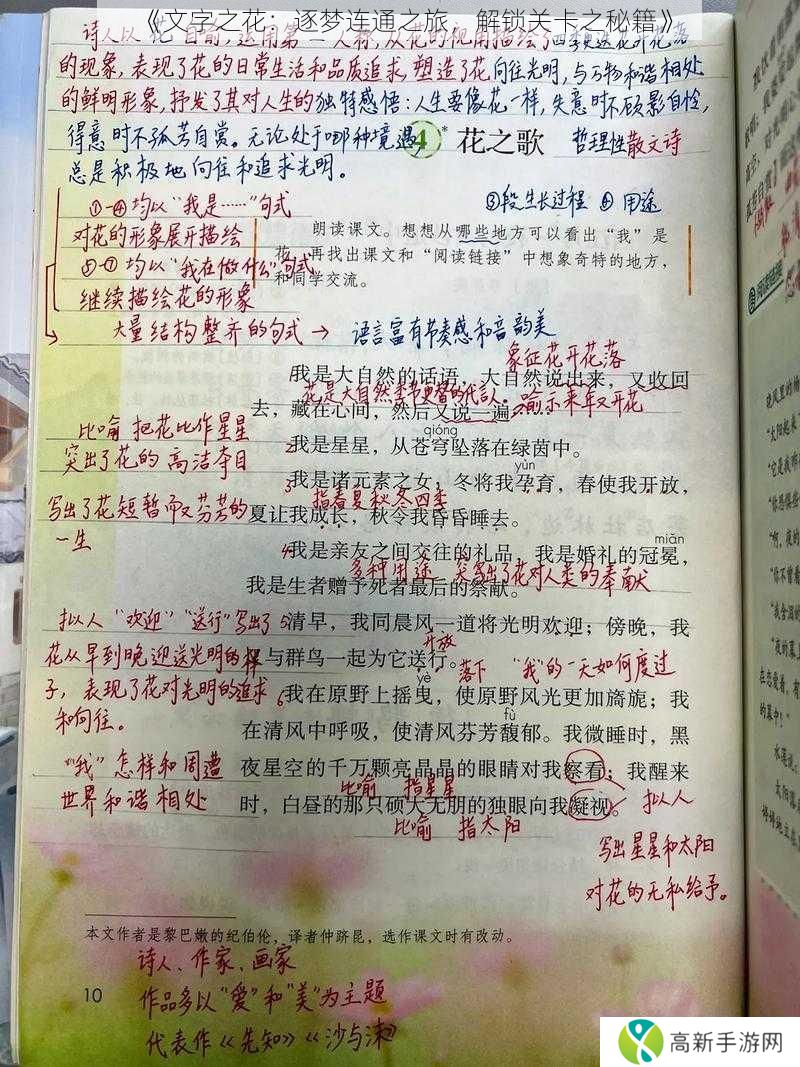 《文字之花：逐梦连通之旅，解锁关卡之秘籍》
诗人以"花"自喻，运用第一人称，从花的视角描绘了四季更迭花开花落
的现象，表现了花的日常生活和品质追求，塑造了花向往光明，与万物和谐相处
的鲜明形象，抒发了其对人生的独特感悟：人生要像花一样，失意时不顾影自怜，
得意时不孤芳自赏。无论处于哪种境遇，
总是积极地向往和追求光明。
4* 花之歌 哲理性散文诗
①-④均以"我是……"句式
对花的形象展开描绘
⑤-⑦均以"我在做什么"句式
继续描绘花的形象
大量结构整齐的句式→语言富有节奏感和音韵美
③段生长过程 ④用途
朗读课文。想想从哪些地方可以看出"我"是
花，再找出课文和"阅读链接"中想象奇特的地方，
和同学交流。
象征花开花落
我是大自然的话语，大自然说出来，又收回
花是大自然季节更替的代言人。喻示来年又开花
去，藏在心间，然后又说一遍……
比喻 把花比作星星
突出了花的高洁夺目
qióng
2我是星星，从苍穹坠落在绿茵中。
yùn
3我是诸元素之女；冬将我孕育，春使我开放，
指春夏秋冬四季
夏让我成长，秋令我昏昏睡去。
写出了花短暂而又芬芳的
一生
miǎn
4我是亲友之间交往的礼品，我是婚礼的冠冕，
多种用途 突出了花对人类的奉献
我是生者赠予死者最后的祭献。
拟人"欢迎""送行"写出了
花从早到晚迎送光明的样
子，表现了花对光明的追求
和向往。
5清早，我同晨风一道将光明欢迎；傍晚，我
开放
又与群鸟一起为它送行。
落下 "我"的一天如何度过
yè
6我在原野上摇曳，使原野风光更加旖旎；我
fù
在清风中呼吸，使清风芬芳馥郁。我微睡时，黑
"我"怎样和周遭
世界和谐相处
夜星空的千万颗亮晶晶的眼睛对我察看；我醒来
比喻 指星星
时，白昼的那只硕大无朋的独眼向我凝视。
拟人
比喻 指太阳
写出星星和太阳
对花的无私给予。
本文作者是黎巴嫩的纪伯伦，译者仲跻昆，选作课文时有改动。
诗人、作家、画家
10
作品多以"爱"和"美"为主题
代表作《先知》《沙与沫》
阅读链接
高新手游网